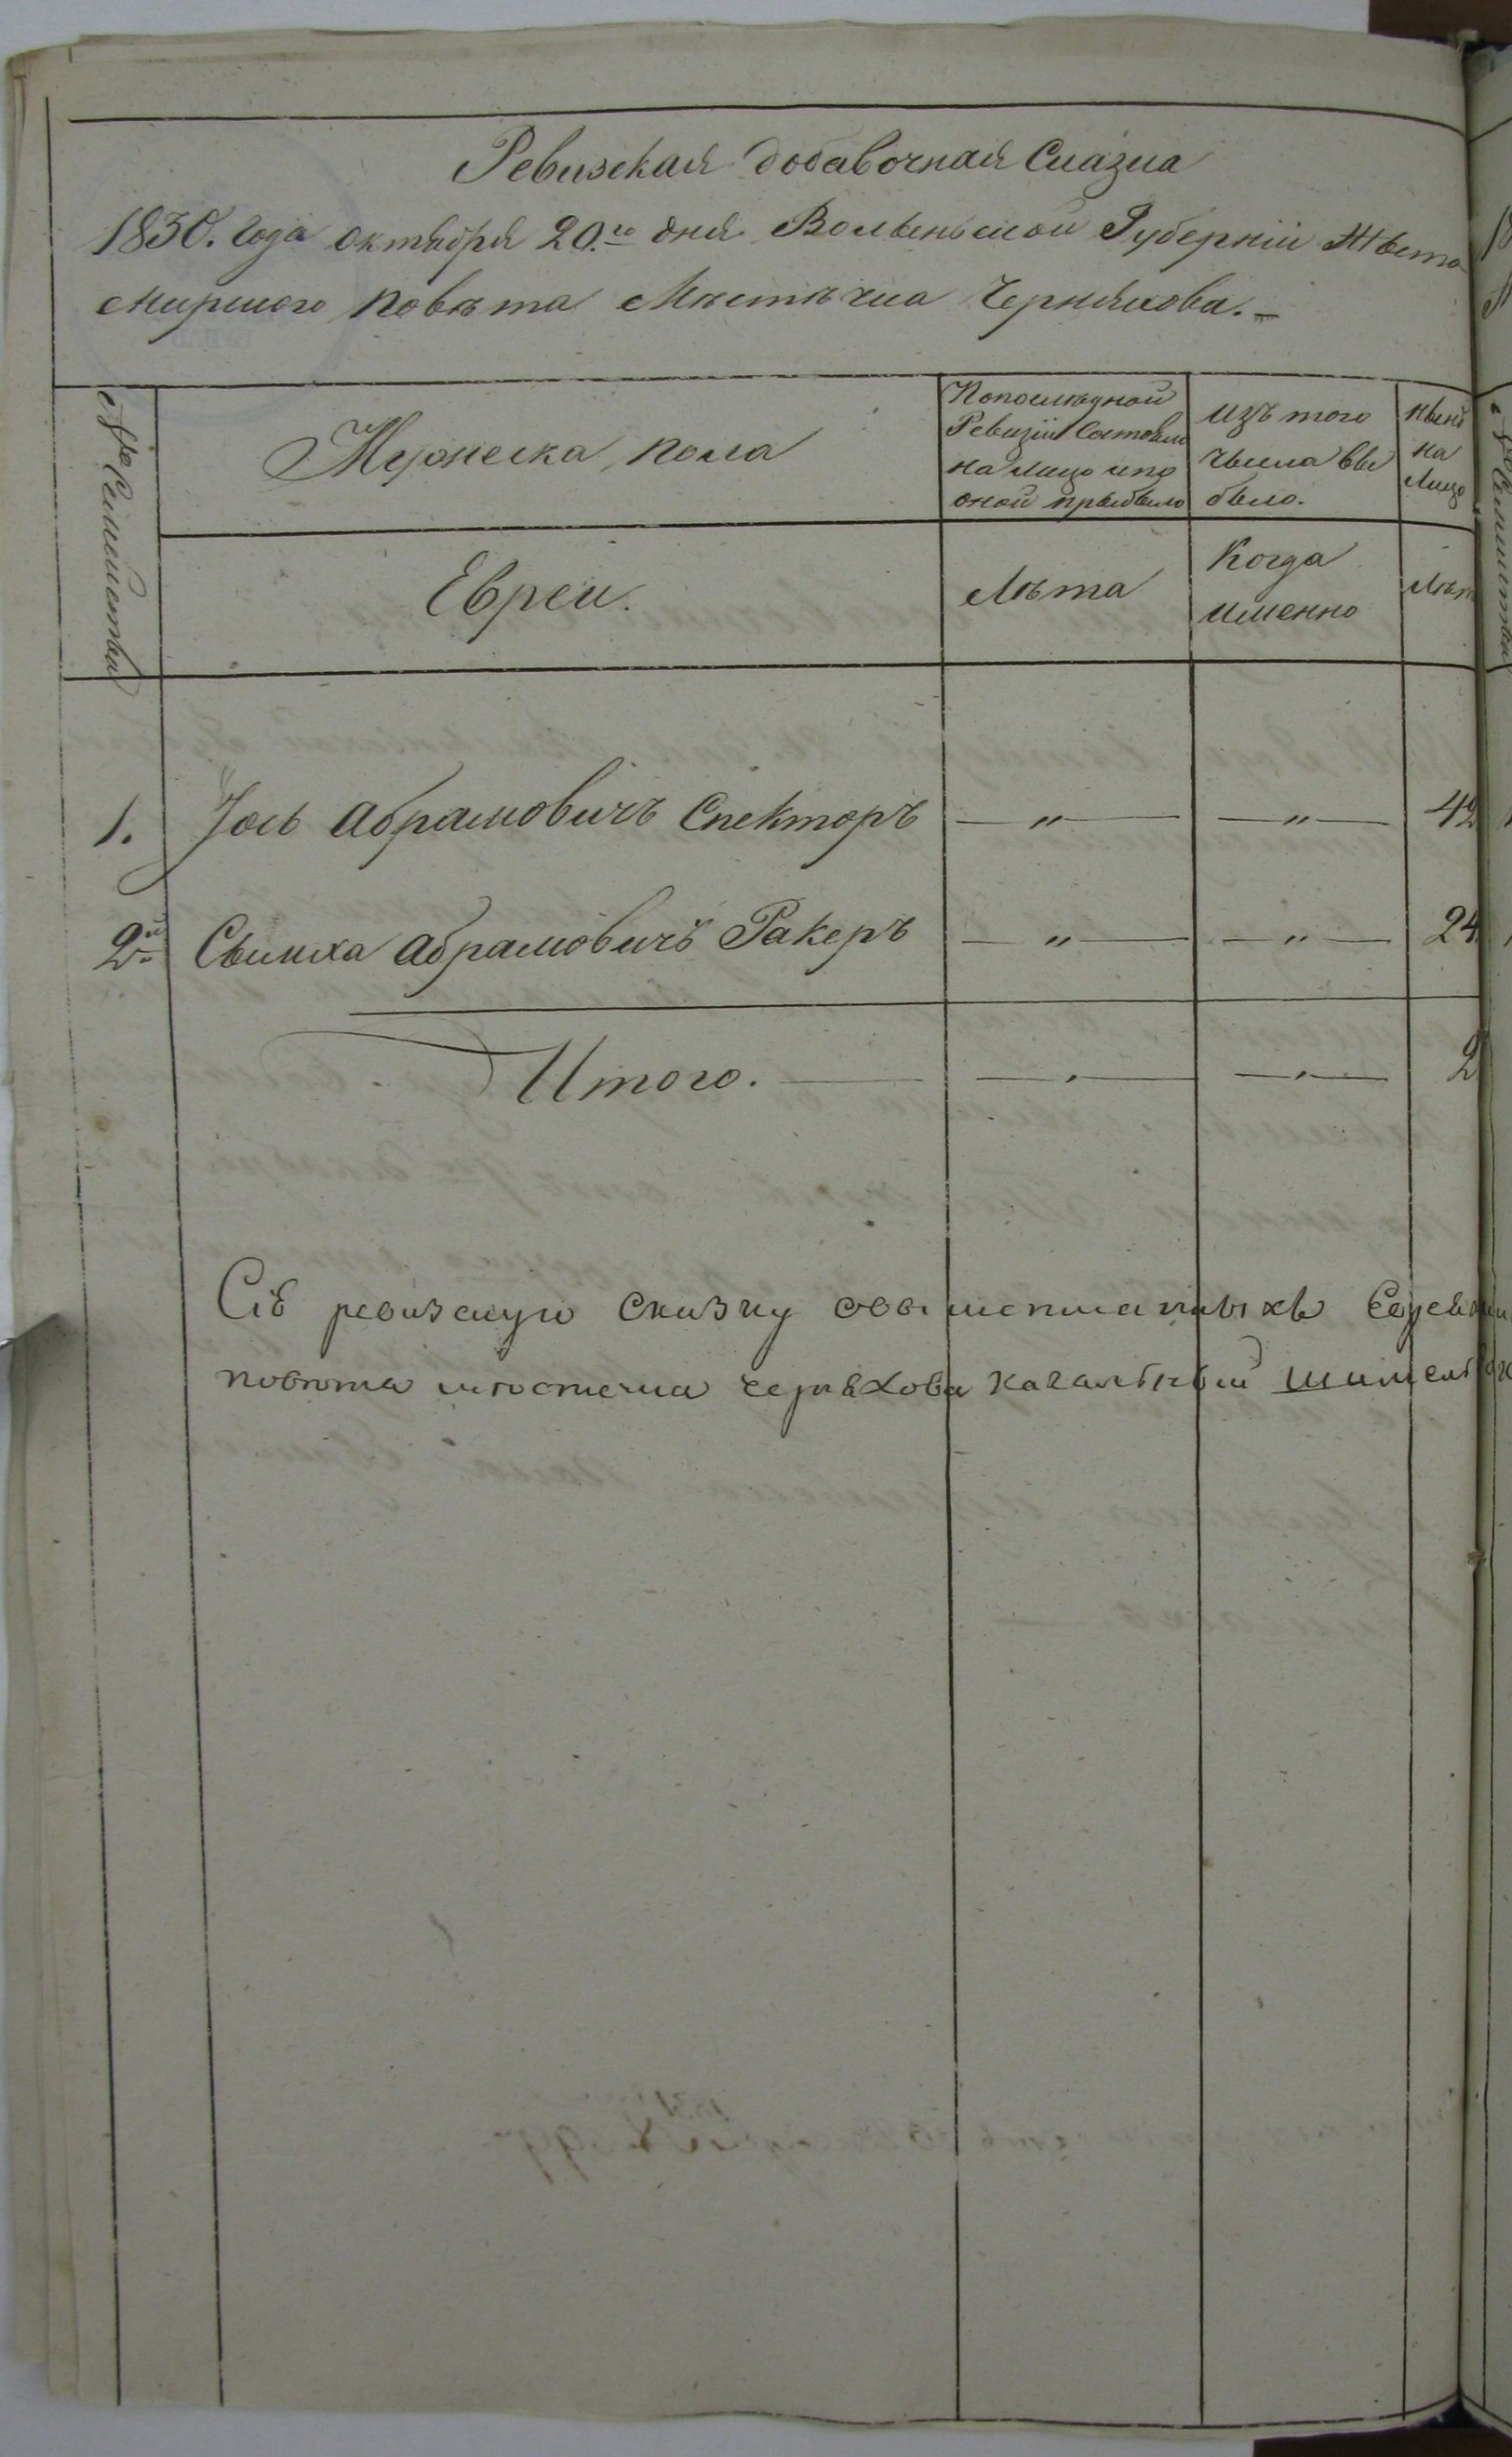 Ревизская добавочная Сказка
1830. года октября 20.го дня Волынской Губернии Жыто
мирского повѣта Мѣстѣчка Чернякова. —
№ Семействъ
Мужеска пола
Попослѣдной
Ревизіи Состояло
на лицо и по
оной прыбыло
Изъ того
чысла вы
было.
Нынѣ
на
Лицо
Евреи.
Лѣта
Когда
именно
Лѣт
1. Іось Абрамовичъ Спекторъ — " — — " — 42
2й Сымха Абрамовичъ Ракеръ — " — — " — 24
Итого. — — " — — " — 2
Сію ревизскую сказку
повѣта мѣстечка Черняхова кагальный Шимель